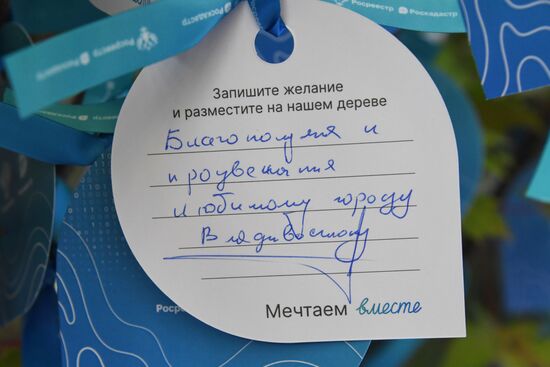 Росреестр Роскадастр
Росреестр
Роскадастр
Запишите желание
и разместите на нашем дереве
Благополучия и
процветания
любимому городу
Владивостоку
Мечтаем вместе
Росреестр